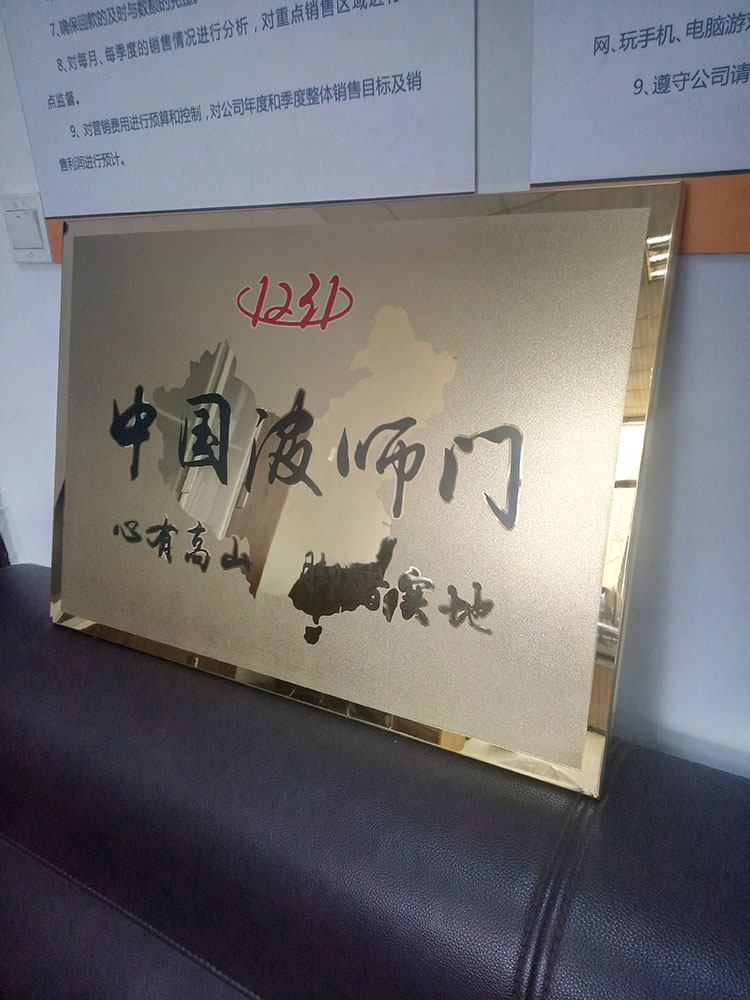 7、确保回款的及时与数额的完整。
8、对每月、每季度的销售情况进行分析，对重点销售区域进行
点监督。
9、对营销费用进行预算和控制，对公司年度和季度整体销售目标及销
售利润进行预计。
网、玩手机、电脑游
9、遵守公司请
中国波师门
心有高山 脚踏实地